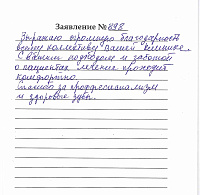 Заявление № 898
Выражаю огромную благодарность
всему коллективу вашей клинике.
С вашим подходом и заботой
о пациентах лечение проходит
комфортно.
Спасибо за профессионализм
и здоровые зубы.